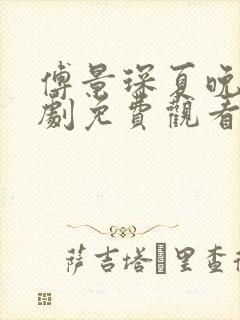 傅景琛夏晚
劇免費觀看
萨吉塔 里查